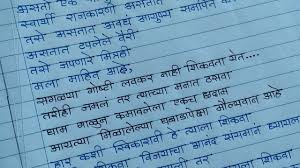 असतो एक
स्वार्थी राजकारणी असतात
तसे असतात अवघे आयुष्य समर्पित
असतात टपलेले वैरी
तसे जपणारे मित्रही
मला माहित आहे,
सगळ्या गोष्टी लवकर नाही शिकवता येत....
तरीही जमलं तर त्याच्या मनात ठसवा
घाम गाळून कमावलेला एकच छदाम
आयत्या मिळालेल्या घबाडापेक्षा मौल्यवान आहे
हार कशी स्विकारावी ते त्याला शिकवा
विजयाचा आनंद संयमानं घ्यायला